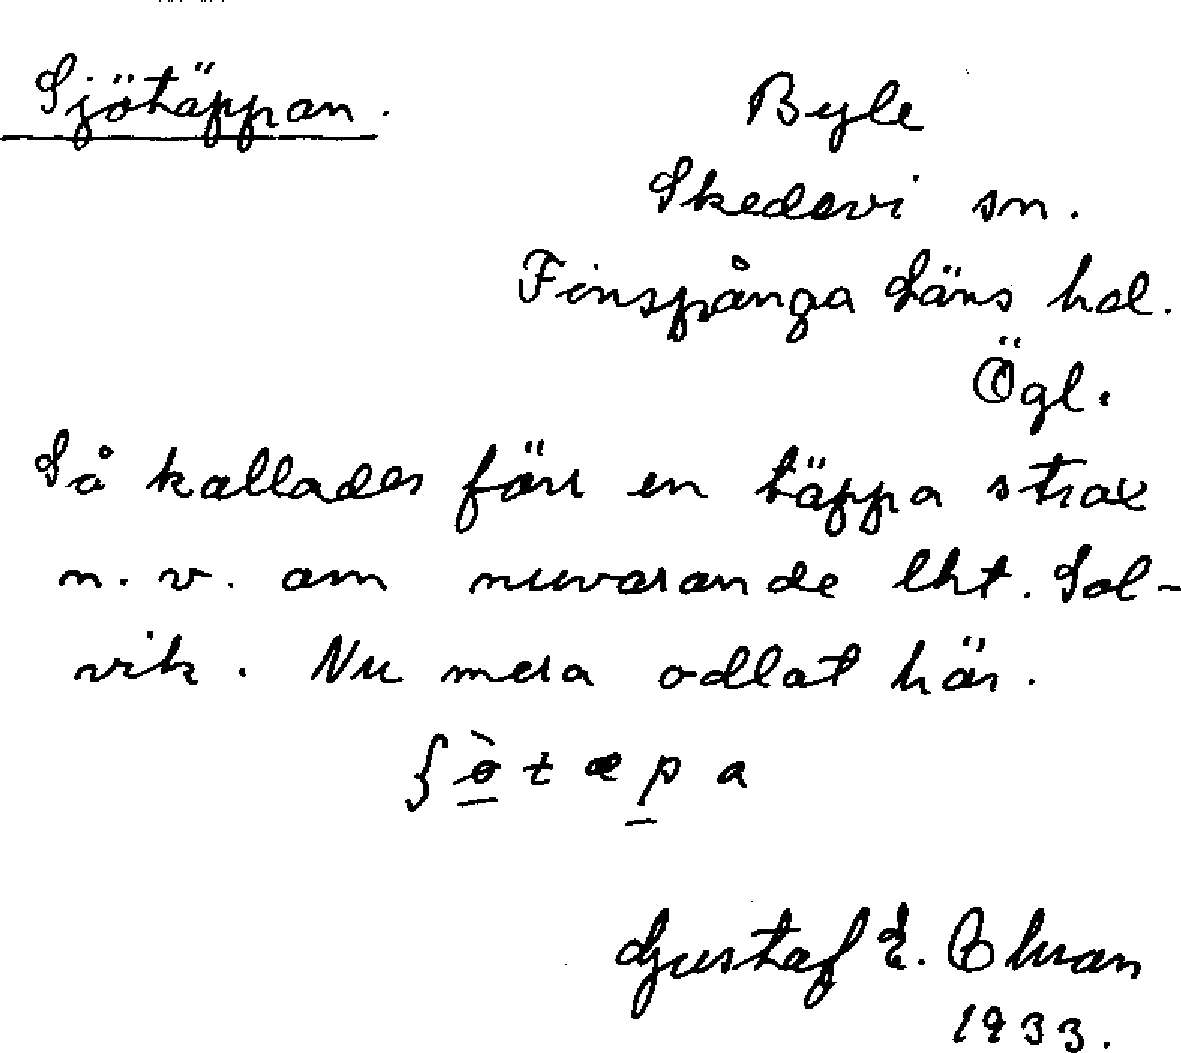 Sjötäppan.
Byle
Skedevi sn.
Finspånga läns hd.
Ögl.
Så kallades förr en täppa strax
n. v. om nuvarande lht. Sol-
vik. Nu mera odlat här.
ʃ ò t æ p a
Gustaf E.
1933.